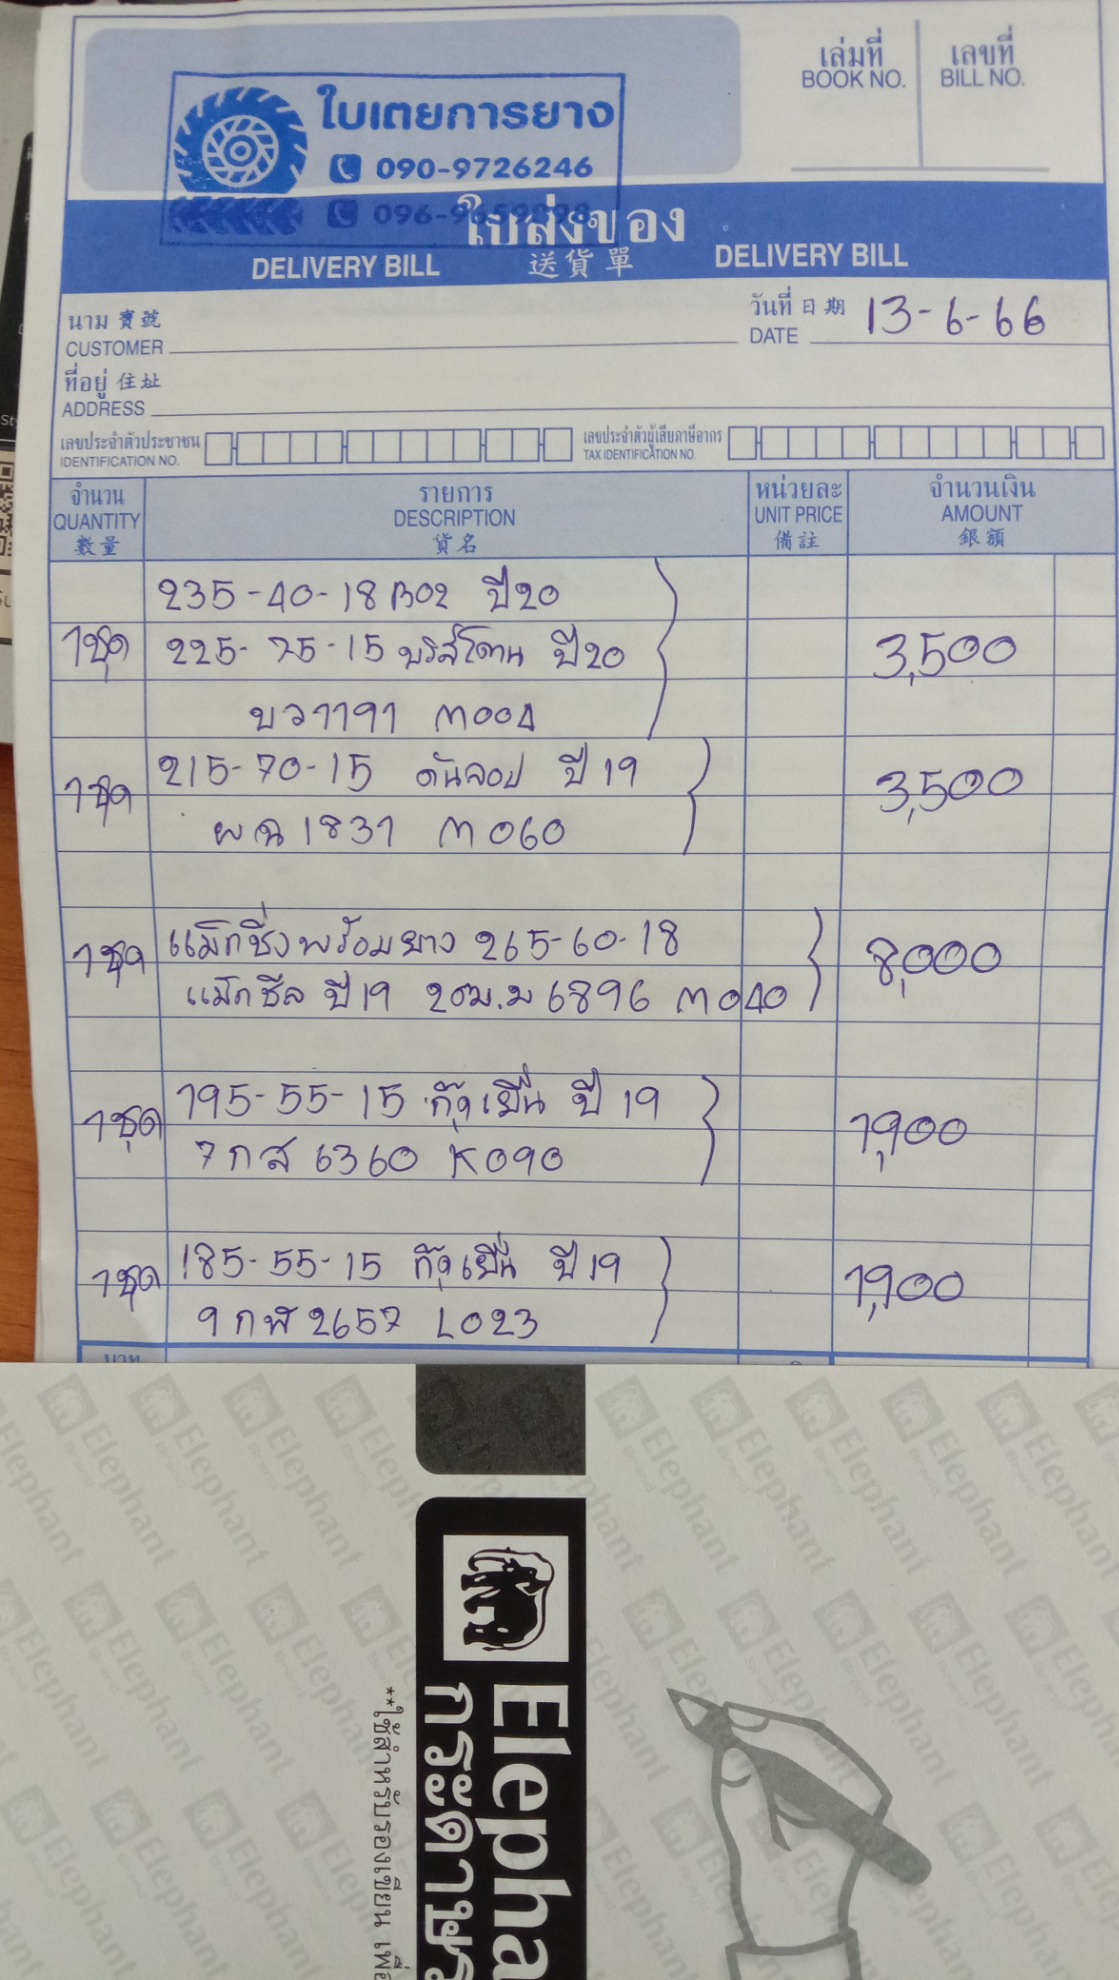 เล่มที่
BOOK NO.
เลขที่
BILL NO.
ใบเตยการยาง
090-9726246
ใบส่งของ
DELIVERY BILL 送貨單 DELIVERY BILL
นาม 寶號
CUSTOMER
วันที่ 日期 13-6-66
DATE
ที่อยู่ 住址
ADDRESS
เลขประจำตัวประชาชน
IDENTIFICATION NO.
เลขประจำตัวผู้เสียภาษีอากร
TAX IDENTIFICATION NO.
จำนวน รายการ หน่วยละ จำนวนเงิน
QUANTITY DESCRIPTION UNIT PRICE AMOUNT
數量 貨名 備註 銀額
235-40-18 ปี20
1ชุด 225-75-15 ปี20 3,500
บว1191 M004
1ชุด 215-70-15 ดันลอป ปี 19 3,500
ผฉ 1831 M060
1ชุด แม็กซิ่งพร้อมยาง 265-60-18 8,000
แม็กซีส ปี19 2ฒม.ม 6896 M040
1ชุด 195-55-15 กู๊ดเยีย ปี 19 1,900
7กส 6360 K090
1ชุด 185-55-15 กู๊ดเยีย ปี19 1,900
9กฬ 2657 L023
บาท
Elepha
กระดาษ
**ใช้สำหรับรองเขียน เพื่อ
Elephant